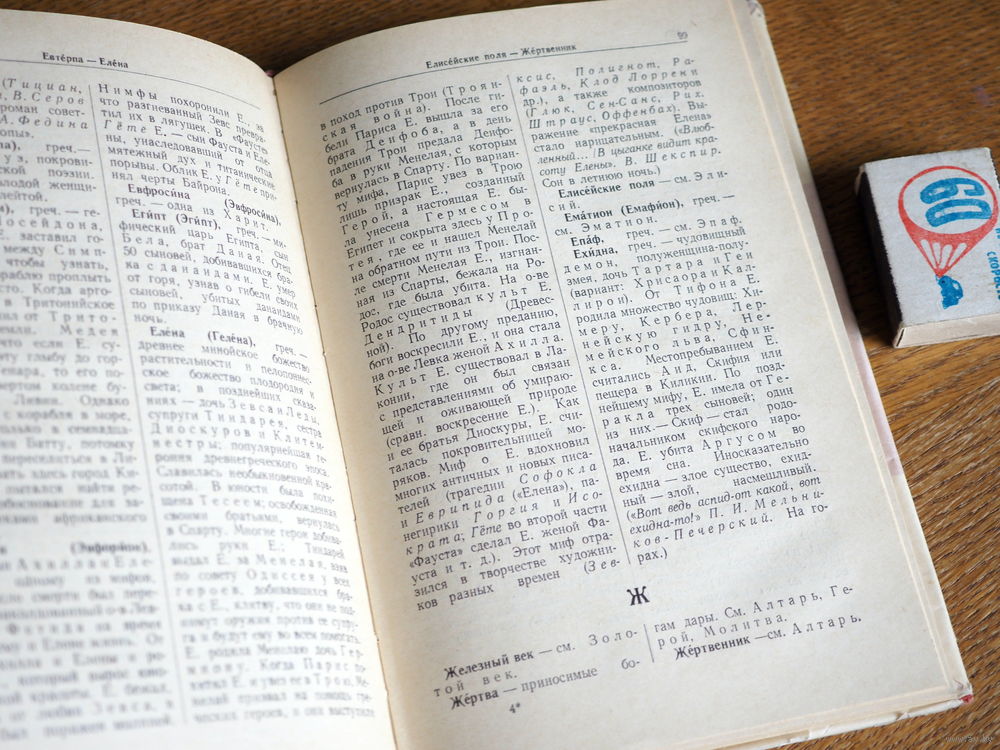 Евте́рпа — Еле́на
(Тициан,
В. Серов
роман совет-
А. Федина
греч.—
покрови-
поэзии.
молодой женщи-
греч. — ге-
Посейдона,
заставил го-
между Симп-
чтобы узнать,
кораблю проплыть
Когда арго-
в Тритонийское
от Трито-
Медея
что если Е. су-
глыбу до гор-
то его по-
Ливии. Однако
с корабля в море,
Батту, потомку
переселиться в Ли-
здесь город Ки-
африканского
Нимфы похоронили Е., за
что разгневанный Зевс превра-
тил их в лягушек. В «Фаусте»
Гёте Е. — сын Фауста и Еле-
ны, унаследовавший от отца
мятежный дух и титанические
порывы. Облик Е. у Гёте при-
нял черты Байрона.
Евфроси́на (Эвфроси́на),
греч. — одна из Харит.
Еги́пт (Эги́пт), греч. — ми-
фический царь Египта, сын
Бела, брат Даная. Отец
50 сыновей, добивавшихся бра-
ка с данаидами. Е. умер
от горя, узнав о гибели своих
сыновей, убитых данаидами
по приказу Даная в брачную
ночь.
Еле́на (Геле́на), греч.—
древнее минойское божество
растительности и пелопоннес-
ское божество плодородия и
света; в позднейших сказа-
ниях — дочь Зевса и Леды,
супруги Тиндарея, сестра
Диоскуров и Клитем-
нестры; популярнейшая ге-
роиня древнегреческого эпоса.
Славилась необыкновенной кра-
сотой. В юности была похи-
щена Тесеем; освобожденная
своими братьями, вернулась
в Спарту. Многие герои добива-
лись руки Е.; Тиндарей
выдал Е. за Менелая, взяв
по совету Одиссея у всех
героев, добивавшихся бра-
ка с Е., клятву, что они не под-
нимут оружия против ее супру-
га и будут ему во всем помогать.
Е. родила Менелаю дочь Гер-
миону. Когда Парис по-
хитил Е. и увез ее в Трою, Ме-
нелай призвал на помощь гре-
ческих героев, и они выступили
Елисе́йские поля — Же́ртвенник
99
в поход против Трои (Троян-
ская война). После ги-
бели Париса Е. вышла за его
брата Деифоба, а в день
падения Трои предала Деифо-
ба в руки Менелая, с которым
вернулась в Спарту. По вариан-
ту мифа, Парис увез в Трою
лишь призрак Е., созданный
Герой, а настоящая Е. бы-
ла унесена Гермесом в
Египет и сокрыта здесь у Про-
тея, где ее и нашел Менелай
на обратном пути из Трои. Пос-
ле смерти Менелая Е., изгнан-
ная из Спарты, бежала на Ро-
дос, где была убита. На о-ве
Родос существовал культ Е.
Дендритиды (Древес-
ной). По другому преданию,
боги воскресили Е., и она стала
на о-ве Левка женой Ахилла.
Культ Е. существовал в Ла-
конии, где он был связан
с представлениями об умираю-
щей и оживающей природе
(сравн. воскресение Е.). Как
и ее братья Диоскуры, Е. счи-
талась покровительницей мо-
ряков. Миф о Е. вдохновил
многих античных и новых писа-
телей (трагедии Софокла
и Еврипида («Елена»), па-
негирики Горгия и Исо-
крата; Гёте во второй части
«Фауста» сделал Е. женой Фа-
уста и т. д.). Этот миф отра-
зился в творчестве художни-
ков разных времен (Зев-
ксис, Полигнот, Ра-
фаэль, Клод Лоррен и
др.), а также композиторов
(Глюк, Сен-Санс, Рих.
Штраус, Оффенбах). Вы-
ражение «прекрасная Елена»
стало нарицательным. («Влюб-
ленный... /В цыганке видит кра-
соту Елены». В. Шекспир.
Сон в летнюю ночь.)
Елисе́йские поля — см. Эли-
сий.
Ема́тион (Емафи́он), греч. —
см. Эматион.
Епа́ф, греч. — см. Эпаф.
Ехи́дна, греч. — чудовищный
демон, полуженщина-полу-
змея, дочь Тартара и Геи
(вариант: Хрисаора и Кал-
лирои). От Тифона Е.
родила множество чудовищ: Хи-
меру, Кербера, Лер-
нейскую гидру, Не-
мейского льва, Сфин-
кса. Местопребыванием Е.
считались Аид, Скифия или
пещера в Киликии. По позд-
нейшему мифу, Е. имела от Ге-
ракла трех сыновей; один
из них.— Скиф — стал родо-
начальником скифского наро-
да. Е. убита Аргусом во
время сна. Иносказательно
ехидна — злое существо, ехид-
ный — злой, насмешливый.
(«Вот ведь аспид-от какой, вот
ехидна-то!» П. И. Мельни-
ков-Печерский. На го-
рах.)
Ж
Желе́зный век — см. Золо-
той век.
Же́ртва — приносимые бо-
гам дары. См. Алтарь, Ге-
рой, Молитва.
Же́ртвенник — см. Алтарь.
4*
60